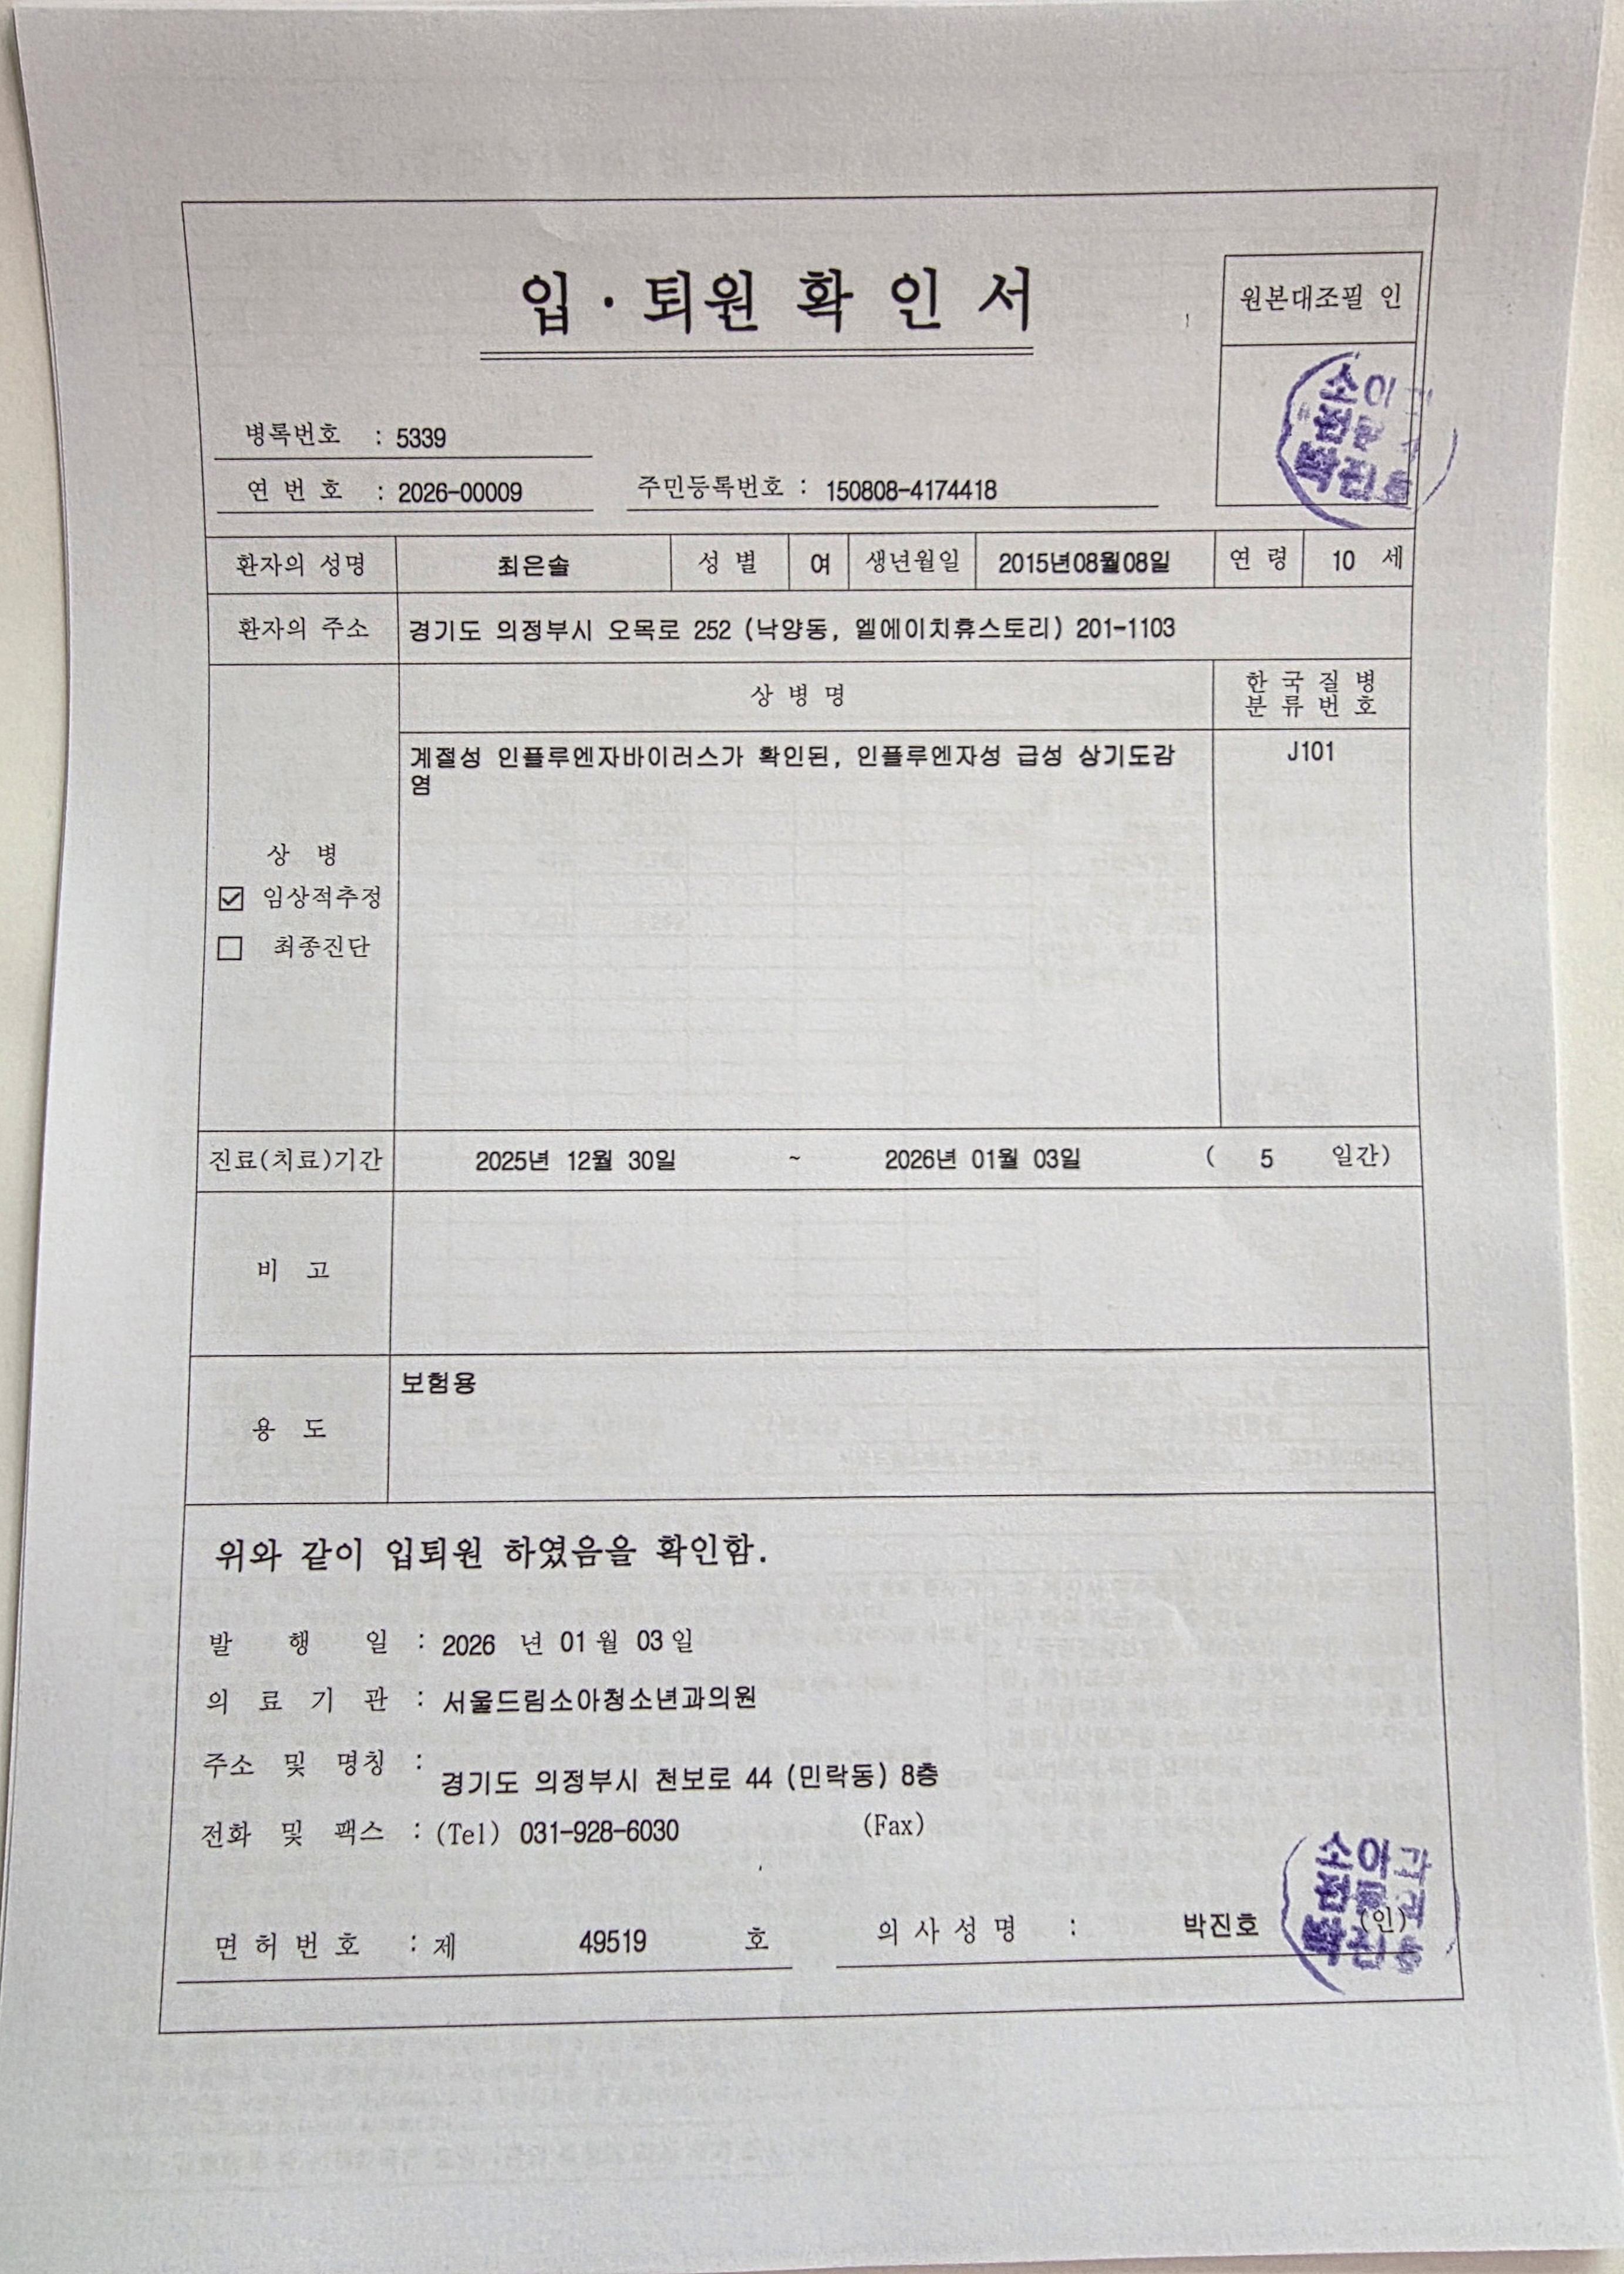 입 · 퇴원 확 인 서
원본대조필 인
병록번호 : 5339
연 번 호 : 2026-00009 주민등록번호 : 150808-4174418
환자의 성명 최은솔 성 별 여 생년월일 2015년08월08일 연 령 10 세
환자의 주소 경기도 의정부시 오목로 252 (낙양동, 엘에이치휴스토리) 201-1103
상 병 명 한 국 질 병
분 류 번 호
계절성 인플루엔자바이러스가 확인된, 인플루엔자성 급성 상기도감 J101
염
상 병
임상적추정
최종진단
진료(치료)기간 2025년 12월 30일 ~ 2026년 01월 03일 ( 5 일간)
비 고
용 도 보험용
위와 같이 입퇴원 하였음을 확인함.
발 행 일 : 2026 년 01 월 03 일
의 료 기 관 : 서울드림소아청소년과의원
주소 및 명칭 : 경기도 의정부시 천보로 44 (민락동) 8층
전화 및 팩스 : (Tel) 031-928-6030 (Fax)
소아과
박진호
면 허 번 호 : 제 49519 호 의 사 성 명 : 박진호 (인)